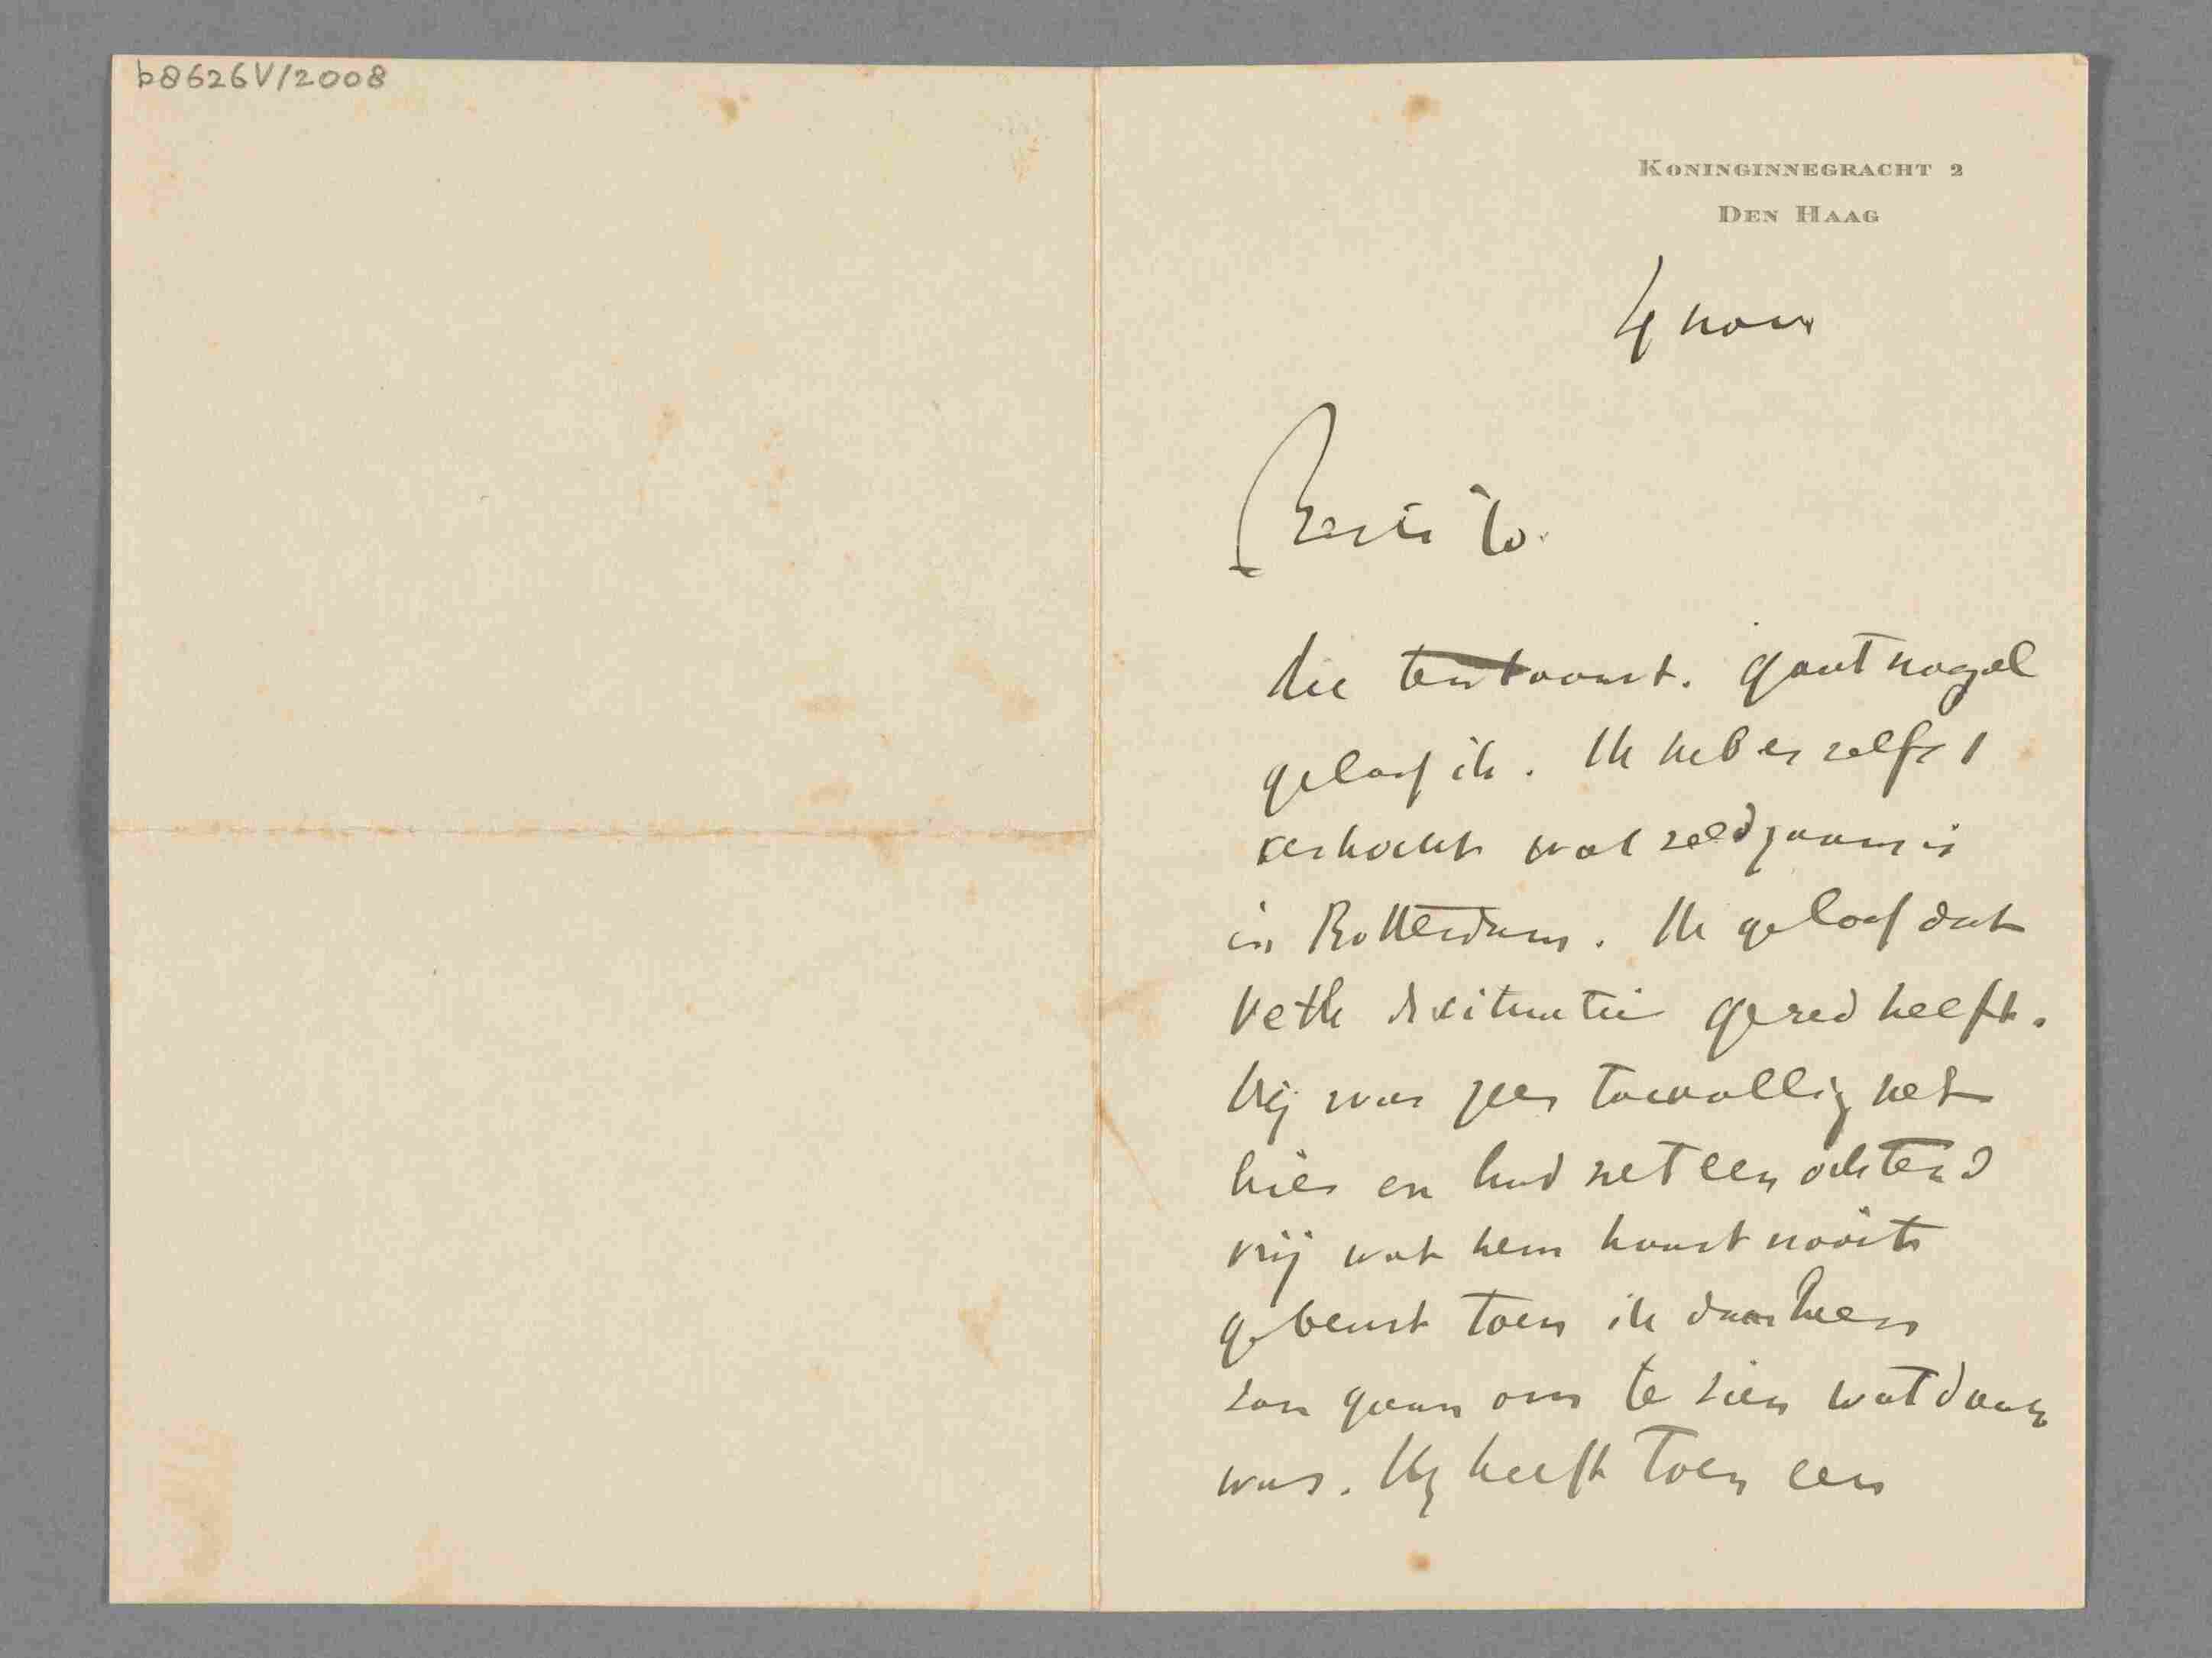 b8626V/2008
KONINGINNEGRACHT 2
DEN HAAG
4 nov
Beste Jo.
die tentoonst. gaat nogal
geloof ik. Ik heb er zelfs 1
verkocht wat zeldzaam is
in Rotterdam. Ik geloof dat
Veth de situatie gered heeft.
Hij was zeer toevallig net
hier en had net een ochtend
vrij wat hem haast nooit
gebeurt toen ik daarheen
zou gaan om te zien wat daar
was. Hij heeft toen een